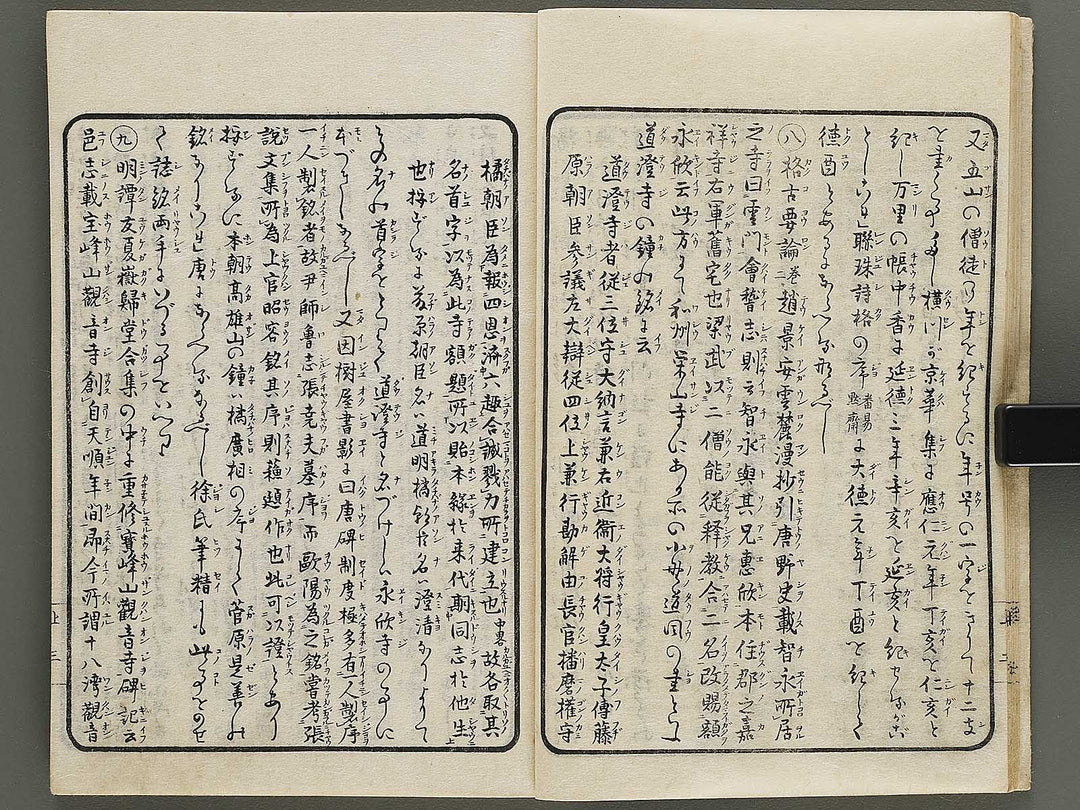 又五山の僧徒の年を紀するに年号の一字をさりて十二支
を重くる事多し横川の京華集に應仁元年丁亥を仁亥と
紀し万里の帳中香に延德三年辛亥を延亥と紀せる
聯珠詩格の序番昜默齋に大德元年丁酉を紀して
德酉とあるに
八格古要論卷二趙景安雲麓漫抄引唐野史載智永所居
之寺曰雲門會誓志則云智永與其兄惠欣本住郡之嘉
祥寺右軍舊宅也梁武以二僧能從釋教合二名改賜額
永欣云此方にて和州栄山寺にある小野道風の書る
道澄寺の鐘の銘に云
道澄寺者從三位守大納言兼右近衞大将行皇太子傅藤
原朝臣參議左大辯從四位上兼行勘解由長官播磨權守
橘朝臣為報四恩濟六趣合誠戮力所建立也中畧故各取其
名首字以為此寺額題所以貽本緣於来代期同志於他生
也按ずるに藤原朝臣名は道明橘朝臣名は澄清なりよりて
その名の首字をとりて道澄寺と名づけし永欣寺の事に
本づきしなるべし又因樹屋書影に曰唐碑制度極多有一人製序
一人製銘者故尹師魯志張堯夫墓序而歐陽為之銘嘗考張
說文集所為上官昭容銘其序則蘇頲作也此可以證とあり
按ずるに本朝高雄山の鐘は橘廣相の序にして菅原是善の
銘あり唐にならへるなるべし徐氏筆精にも此事をのせ
て誌銘両手にいづる事をいへり
九明譚友夏嶽歸堂合集の中に重修寳峰山觀音寺碑記云
邑志載宝峰山觀音寺創自天順年間即今所謂十八灣觀音